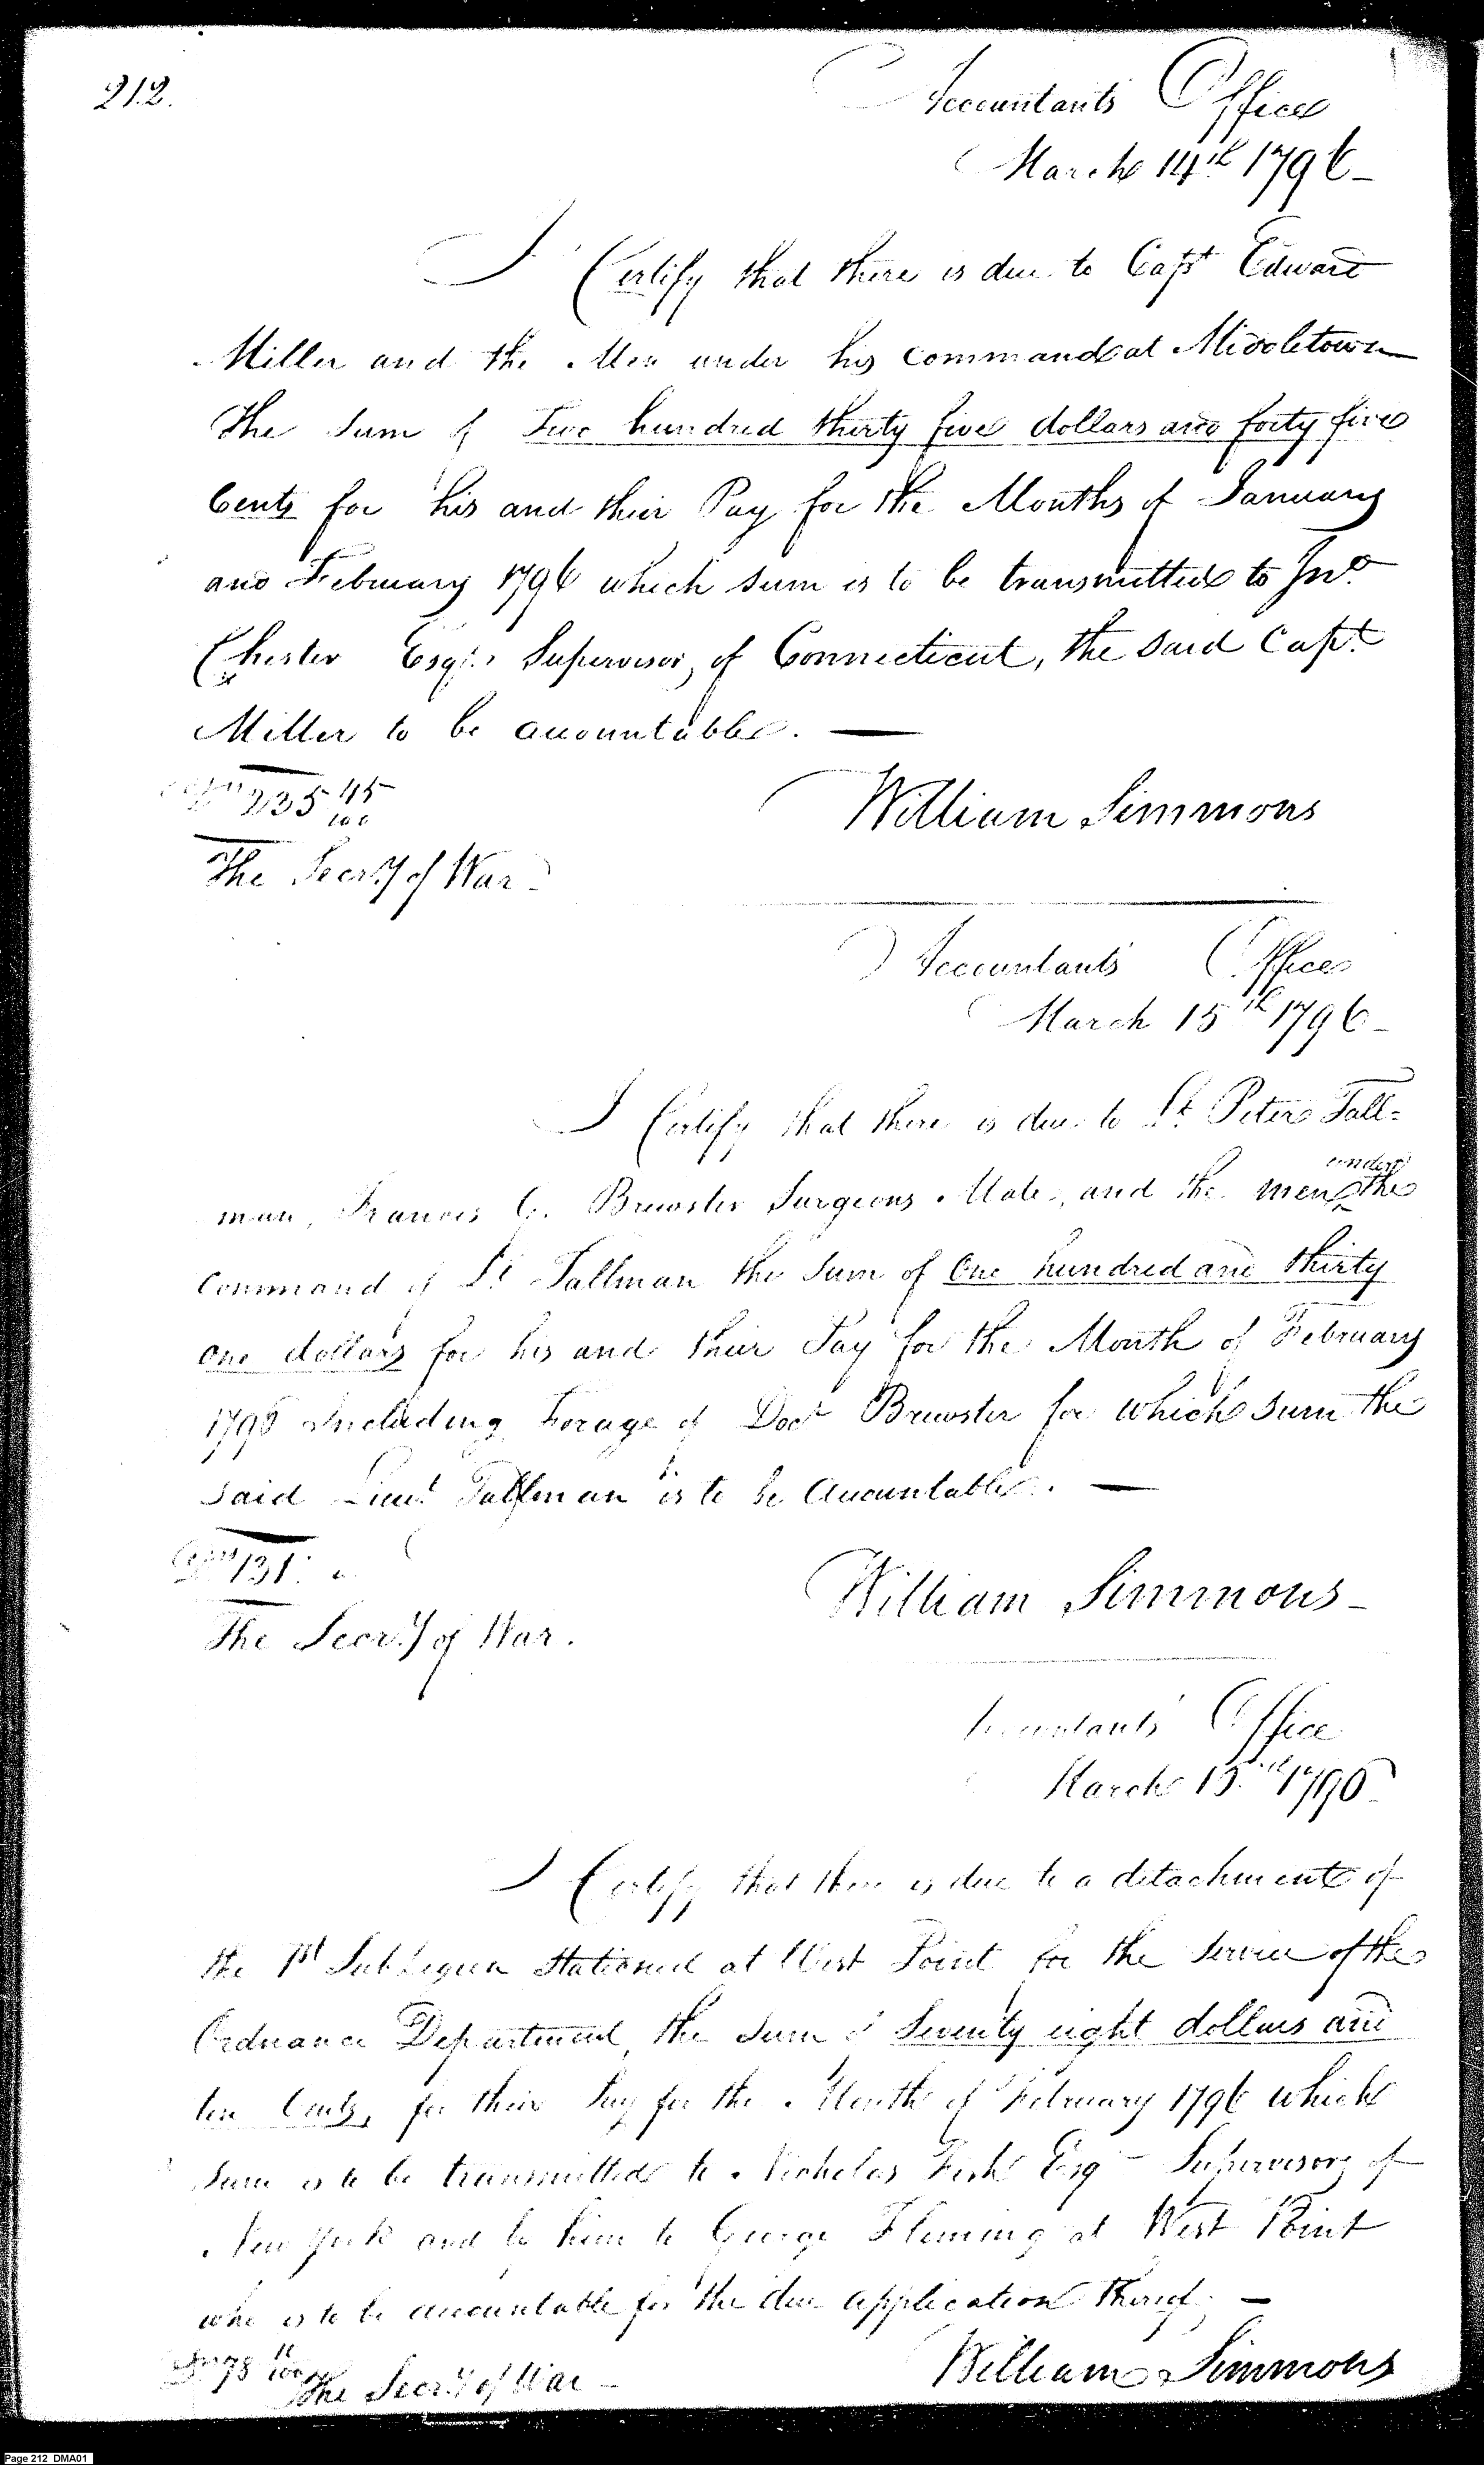 212.
Accountants Office
March 14th 1796-
I Certify that there is due to Capt Edward
Miller and the Men under his command at Middletown
The Sum of Two hundred thirty five dollars and forty five
Cents for his and their Pay for the Months of January
and February 1796 which sum is to be transmitted to Jno
Chester Esqr. Supervisor, of Connecticut, the said Capt.
Miller to be accountable. —
235 45/100
William Simmons
The Secry of War -
Accountants Office
March 15th 1796-
I Certify that there is due to Lt Peter Tall=
under
man, Francis G. Brewster Surgeons Mate, and the men ^ the
Command of Lt Tallman the Sum of One hundred and thirty
one dollars for his and their Pay for the Month of February
1796 Including Forage of Doct Brewster for which sum the
said Lieut Tallman is to be Accountable. —
131.
William Simmons -
The Secry of War.
Accountants Office
March 15th 1796
I Certify that there is due to a detachment of
the 1st Sub Legion Stationed at West Point for the Service of the
Ordnance Department, the Sum of Seventy eight dollars and
ten Cents, for their Pay for the Month of February 1796 which
Sum is to be transmitted to Nicholas Fish Esq - Supervisor, of
New York and by him to George Fleming at West Point
who is to be accountable for the due application thereof. —
78 10/100
The Secry of War -
William Simmons
Page 212 DMA01